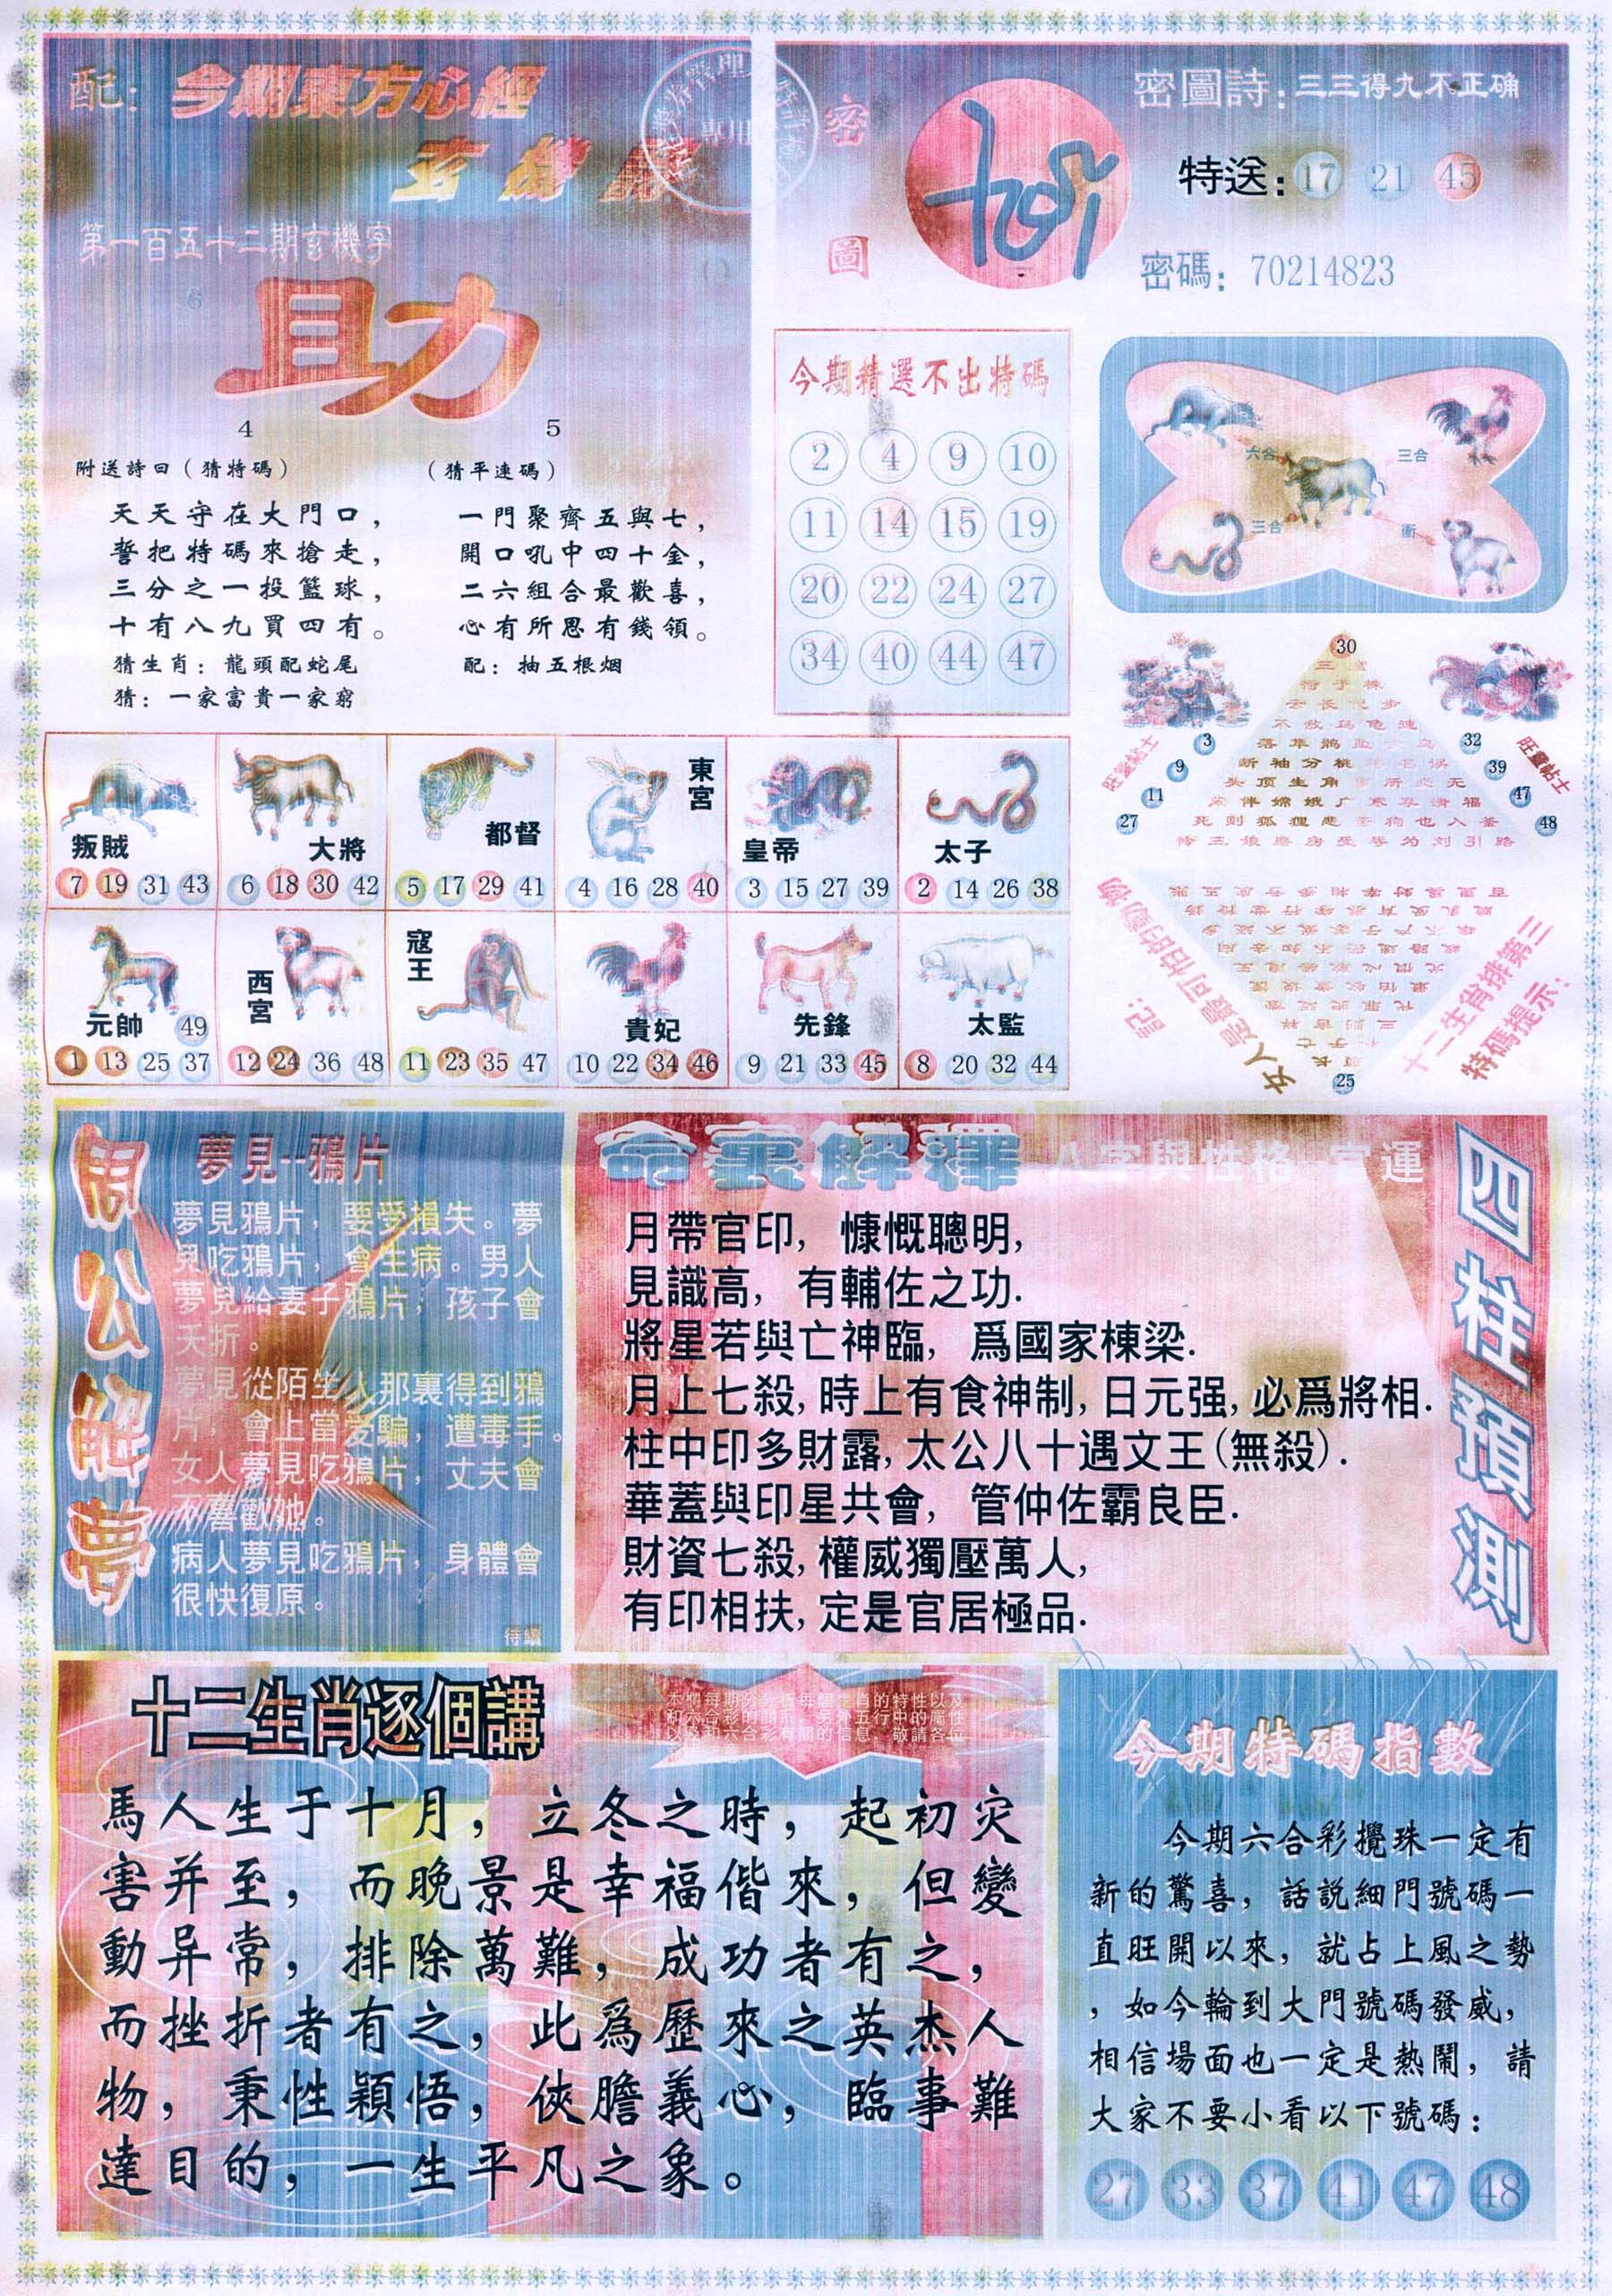 配：今期東方心經
玄機
第一百五十二期玄機字
助
4
5
附送詩曰（猜特碼）
天天守在大門口，
誓把特碼來搶走，
三分之一投籃球，
十有八九買四有。
猜生肖：龍頭配蛇尾
猜：一家富貴一家窮
（猜平連碼）
一門聚齊五與七，
開口吼中四十金，
二六組合最歡喜，
心有所思有錢領。
配：抽五根烟
密圖
密圖詩：三三得九不正确
特送：17 21 45
密碼：70214823
今期精選不出特碼
2 4 9 10
11 14 15 19
20 22 24 27
34 40 44 47
六合
三合
三合
衝
30
旺靈帖士
3
9
11
27
旺靈帖士
32
39
47
48
落草鵲
断袖分桃
头顶生角
闲伴嫦娥广寒享清福
記：
女人是最可怕的動物
特碼提示：
十二生肖排第三
25
叛賊
7 19 31 43
大將
6 18 30 42
都督
5 17 29 41
東宮
4 16 28 40
皇帝
3 15 27 39
太子
2 14 26 38
元帥
49
1 13 25 37
西宮
12 24 36 48
寇王
11 23 35 47
貴妃
10 22 34 46
先鋒
9 21 33 45
太監
8 20 32 44
周公解夢
夢見--鴉片
夢見鴉片，要受損失。夢
見吃鴉片，會生病。男人
夢見給妻子鴉片，孩子會
夭折。
夢見從陌生人那裏得到鴉
片，會上當受騙，遭毒手。
女人夢見吃鴉片，丈夫會
不喜歡她。
病人夢見吃鴉片，身體會
很快復原。
待續
命裏解釋 八字與性格 官運
四柱預測
月帶官印，慷慨聰明，
見識高，有輔佐之功.
將星若與亡神臨，爲國家棟梁.
月上七殺,時上有食神制,日元强,必爲將相.
柱中印多財露,太公八十遇文王(無殺).
華蓋與印星共會，管仲佐霸良臣.
財資七殺,權威獨壓萬人,
有印相扶,定是官居極品.
十二生肖逐個講
本欄每期分析每個生肖的特性以及
和六合彩的關系，另外五行中的屬性
以及和六合彩有關的信息，敬請各位
馬人生于十月，立冬之時，起初灾
害并至，而晚景是幸福偕來，但變
動异常，排除萬難，成功者有之，
而挫折者有之，此爲歷來之英杰人
物，秉性穎悟，俠膽義心，臨事難
達目的，一生平凡之象。
今期特碼指數
今期六合彩攪珠一定有
新的驚喜，話説細門號碼一
直旺開以來，就占上風之勢
，如今輪到大門號碼發威，
相信場面也一定是熱鬧，請
大家不要小看以下號碼：
27 33 37 41 47 48